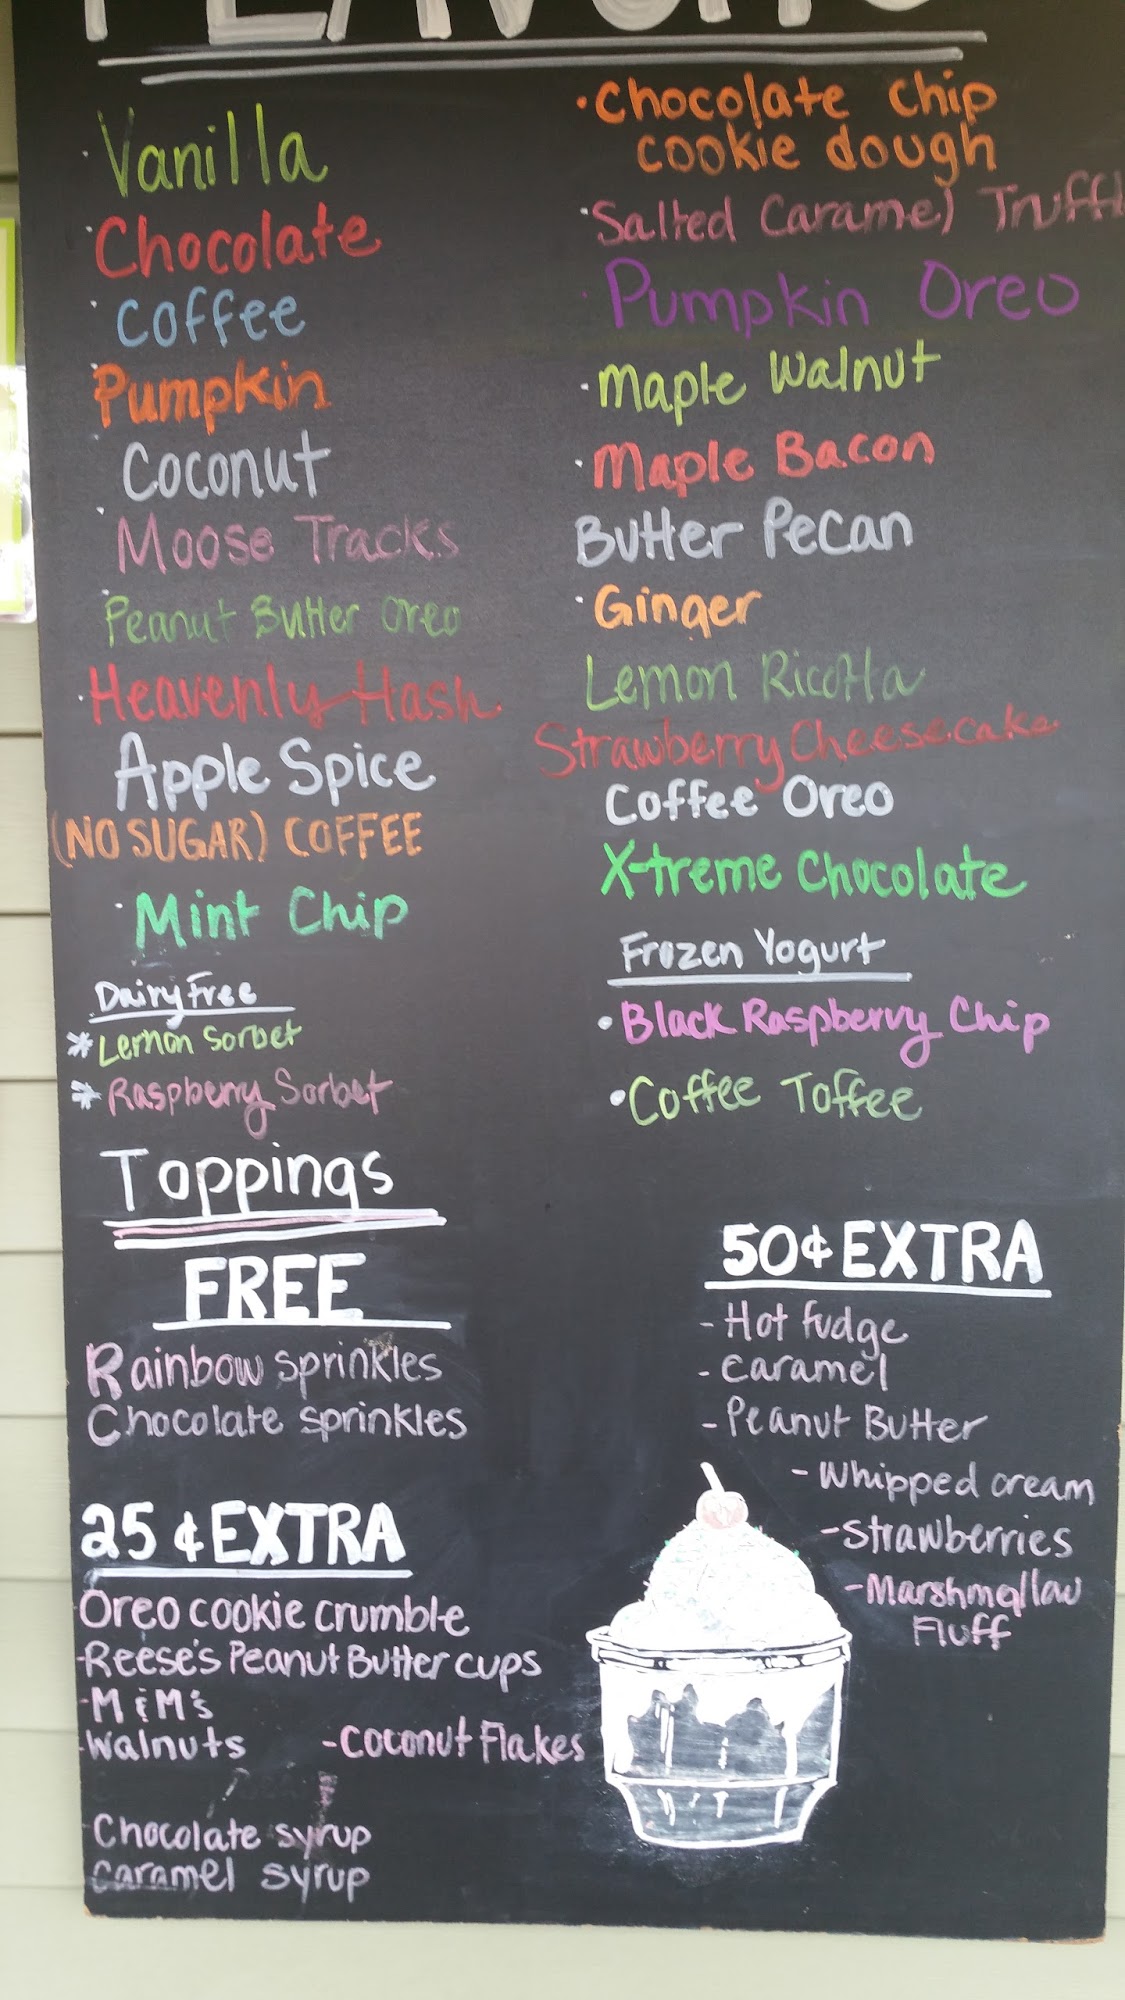 FLAVORS
Vanilla
Chocolate
Coffee
Pumpkin
Coconut
Moose Tracks
Peanut Butter Oreo
Heavenly Hash
Apple Spice
(NO SUGAR) COFFEE
Mint Chip
Dairy Free
* Lemon Sorbet
* Raspberry Sorbet
• Chocolate Chip
cookie dough
Salted Caramel Truffl
Pumpkin Oreo
Maple Walnut
Maple Bacon
Butter Pecan
Ginger
Lemon Ricotta
Strawberry Cheesecake
Coffee Oreo
X-treme Chocolate
Frozen Yogurt
• Black Raspberry Chip
• Coffee Toffee
Toppings
FREE
Rainbow sprinkles
Chocolate sprinkles
25¢ EXTRA
Oreo cookie crumble
-Reese's Peanut Butter cups
-M&M's
-Walnuts
-Coconut Flakes
Chocolate syrup
caramel syrup
50¢ EXTRA
- Hot fudge
- caramel
- Peanut Butter
- Whipped cream
- Strawberries
- Marshmallow
Fluff